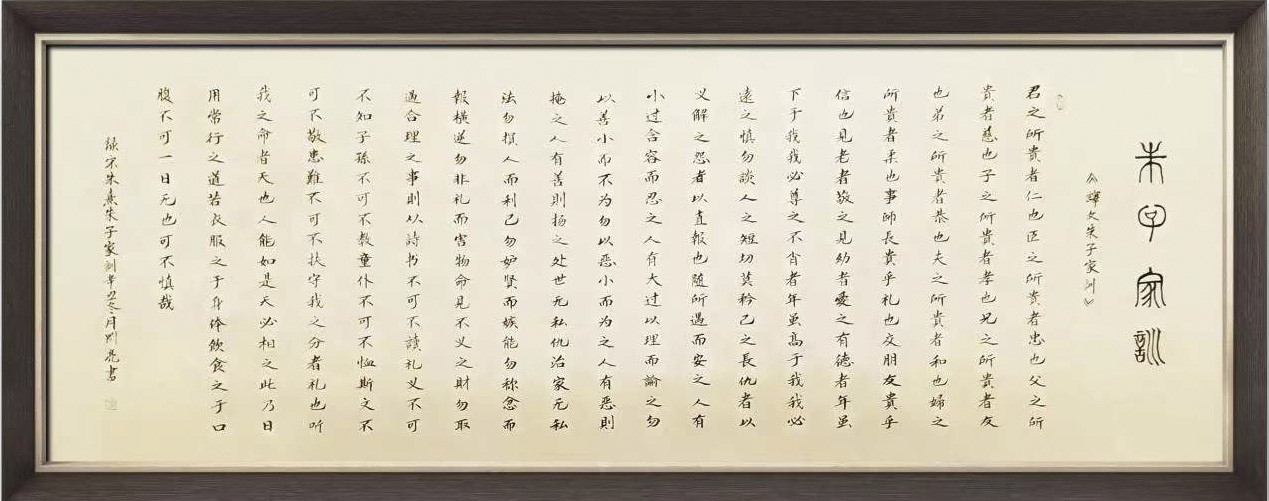 朱子家訓
《譯文朱子家训》
君之所貴者仁也臣之所貴者忠也父之所
貴者慈也子之所貴者孝也兄之所貴者友
也弟之所貴者恭也夫之所貴者和也婦之
所貴者柔也事師長貴乎礼也交朋友貴乎
信也見老者敬之見幼者愛之有德者年虽
下于我我必尊之不肖者年虽高于我我必
遠之慎勿談人之短切莫矜己之長仇者以
义解之怨者以直報也随所遇而安之人有
小过含容而忍之人有大过以理而諭之勿
以善小而不为勿以恶小而为之人有恶則
掩之人有善則扬之处世无私仇治家无私
法勿損人而利己勿妒贤而嫉能勿称忿而
報横逆勿非礼而害物命見不义之財勿取
遇合理之事則从詩书不可不讀礼义不可
不知子孫不可不教童仆不可不恤斯文不
可不敬患難不可不扶守我之分者礼也听
我之命者天也人能如是天必相之此乃日
用常行之道若衣服之于身体飲食之于口
腹不可一日无也可不慎哉
録宋朱熹朱子家训辛丑冬月刘亮書